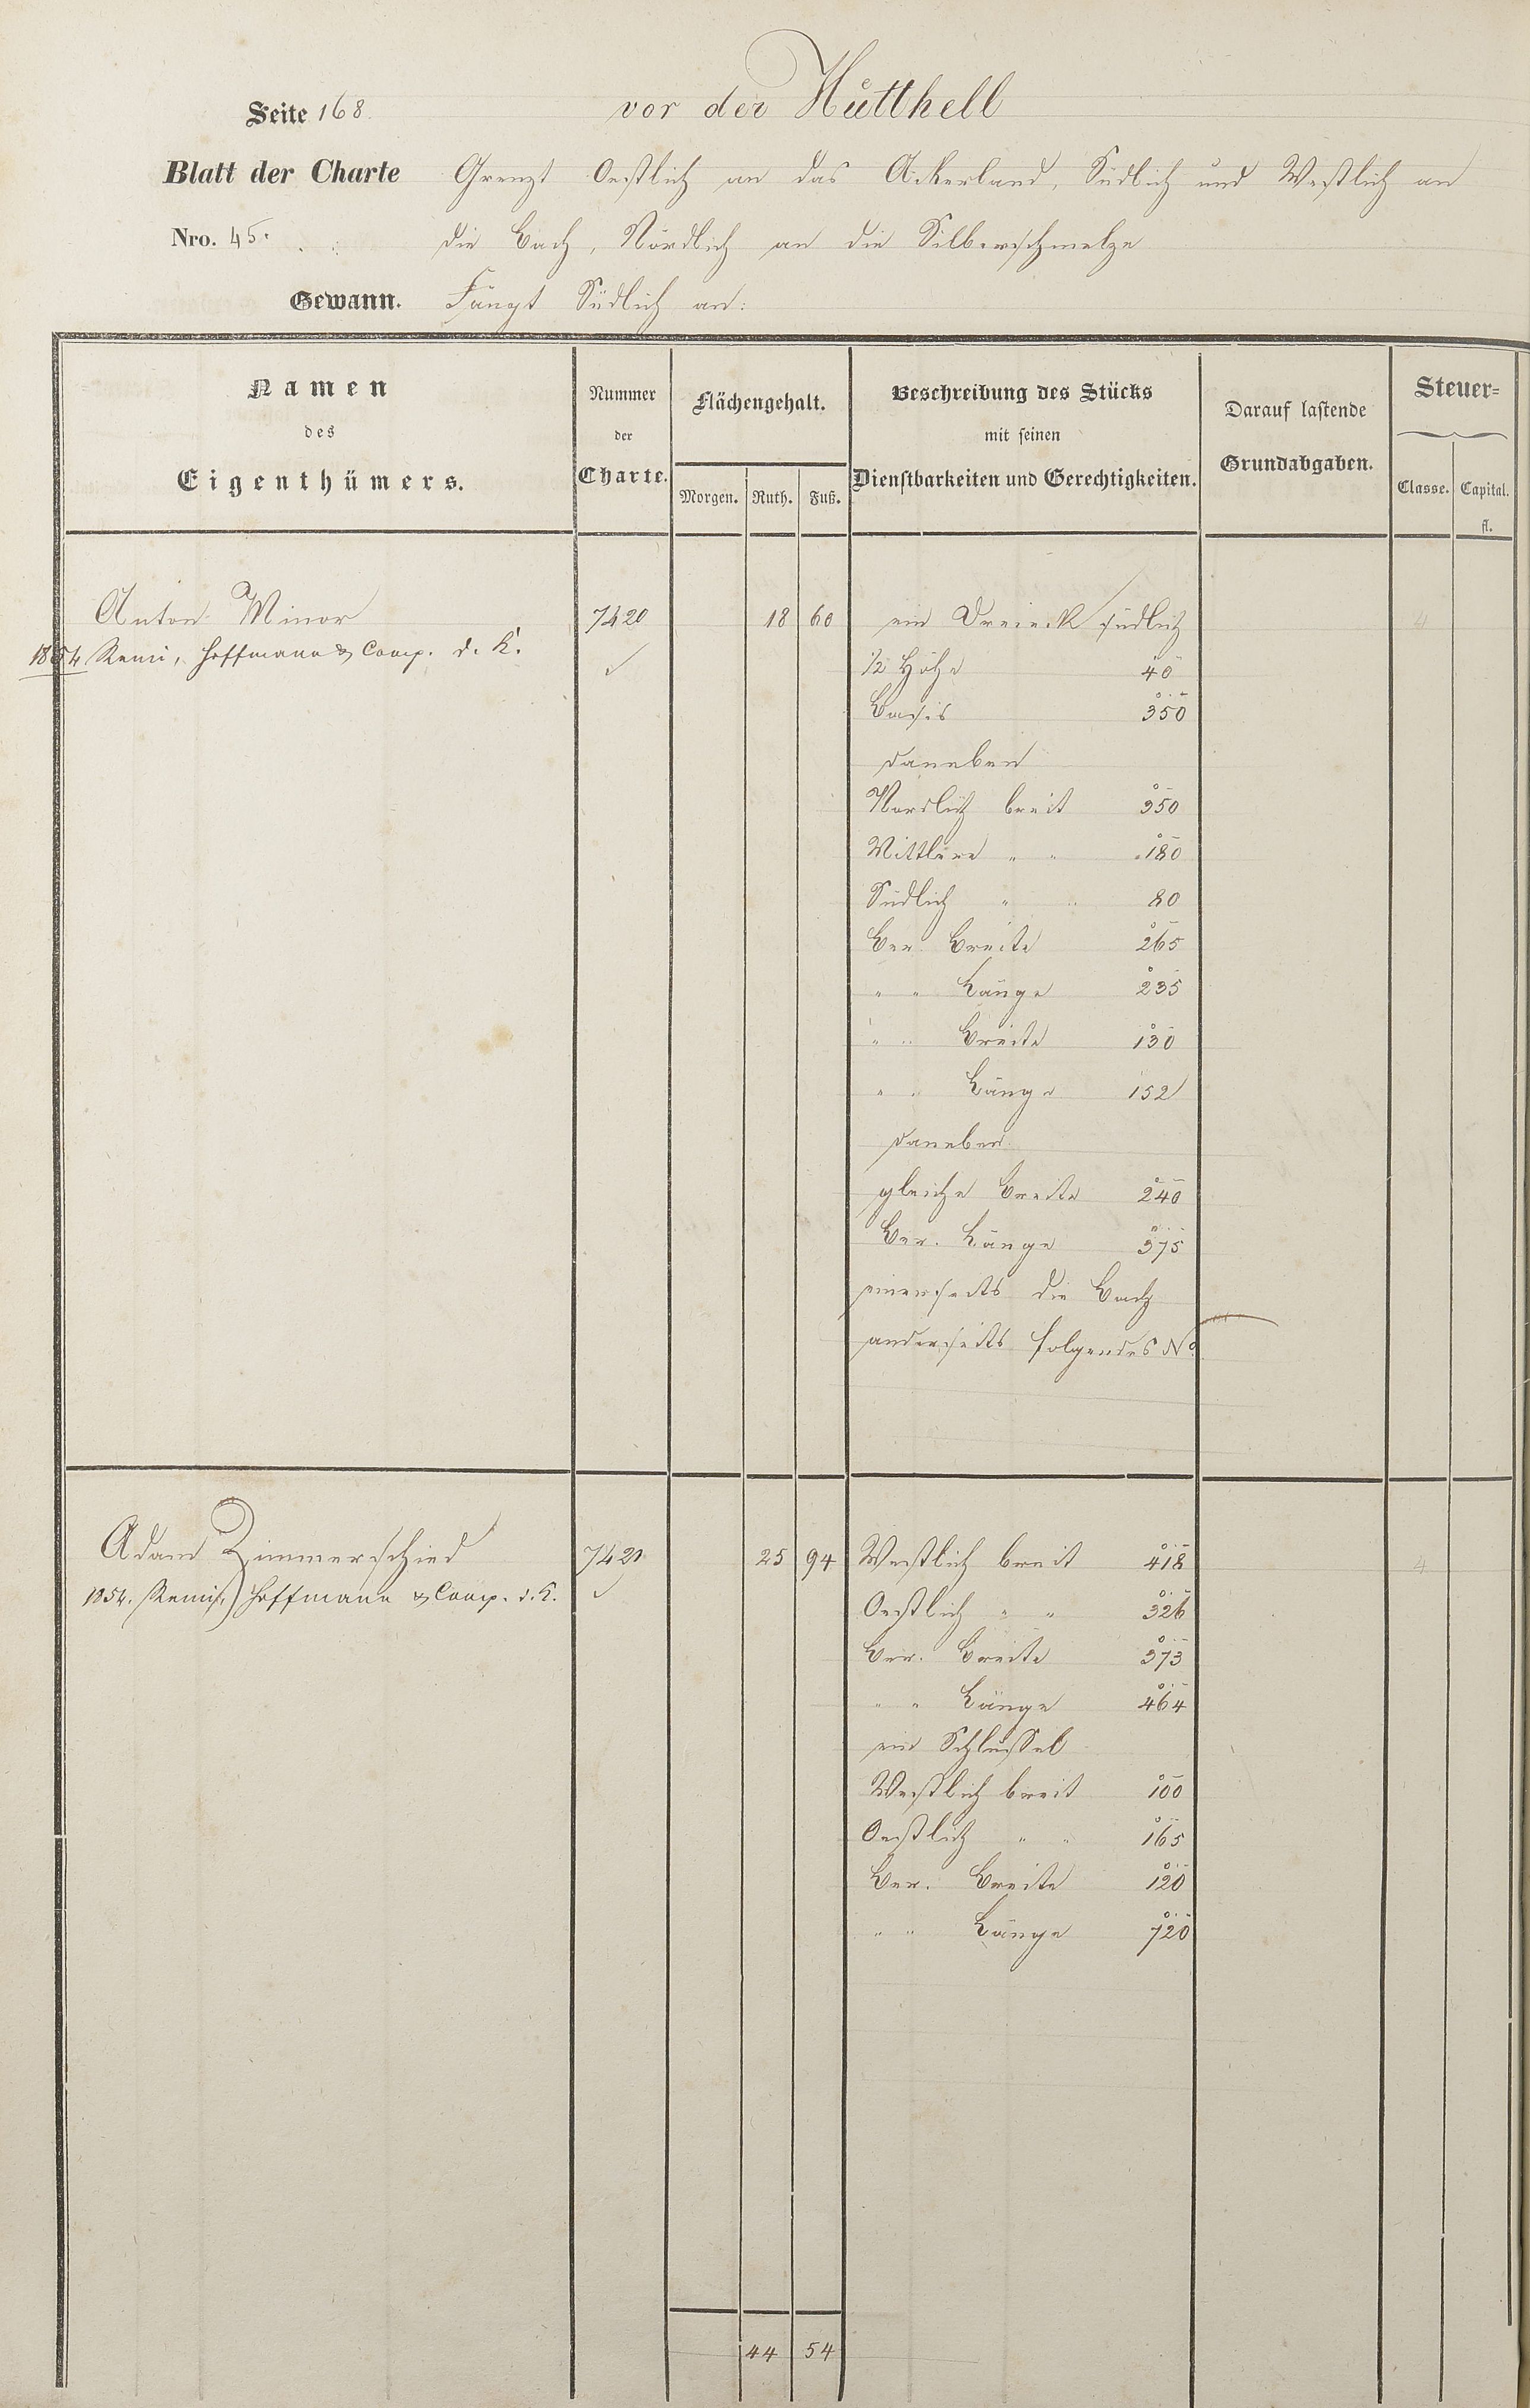 Seite 168.
vor der Hütthell
Blatt der Charte
Grenzt Oestlich an das Ackerland, Südlich und Westlich an
Nro. 45.
die Bach, Nördlich an die Silberschmelze
Gewann.
Fängt Südlich an:
Namen
des
Eigenthümers.
Nummer
der
Charte.
Flächengehalt.
Morgen. Ruth. Fuß.
Beschreibung des Stücks
mit seinen
Dienstbarkeiten und Gerechtigkeiten.
Darauf lastende
Grundabgaben.
Steuer=
Classe. Capital.
fl.
Anton Minor 7420 18 60 ein Dreieck südlich 4
1854 Remi, Hoffmann & Comp. d. K. ✓
1/2 Höhe 40
Basis 350
daneben
Nordlich breit 350
Mittlere " " 180
Südlich " " 80
Ber. Breite 265
" " Länge 235
" " Breite 130
" " Länge 152
daneben
gleiche Breite 240
Ber. Länge 375
einerseits die Bach
anderseits folgendes No.
Adam Zimmerschied 7421 25 94 Westlich breit 418 4
1854. Remi, Hoffmann & Comp. d. K. ✓
Oestlich " " 326
Ber. Breite 373
" " Länge 464
ein Schlüssel
Westlich breit 100
Oestlich " " 165
Ber. Breite 120
" " Länge 720
44 54